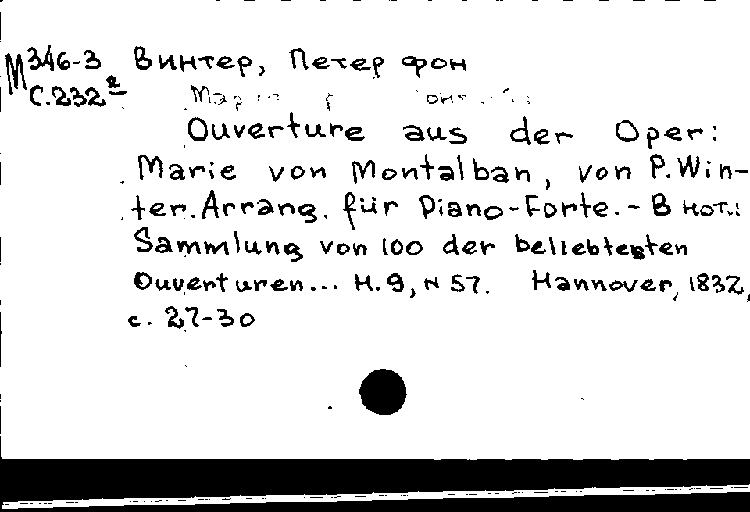 М 346-3 Винтер, Петер фон
С.232 2
Ouverture aus der Oper:
Marie von Montalban, von P. Win-
ter. Arrang. für Piano-Forte. - В нот.:
Sammlung von 100 der beliebtesten
Ouverturen... H. 9, N 57. Hannover, 1832,
с. 27-30